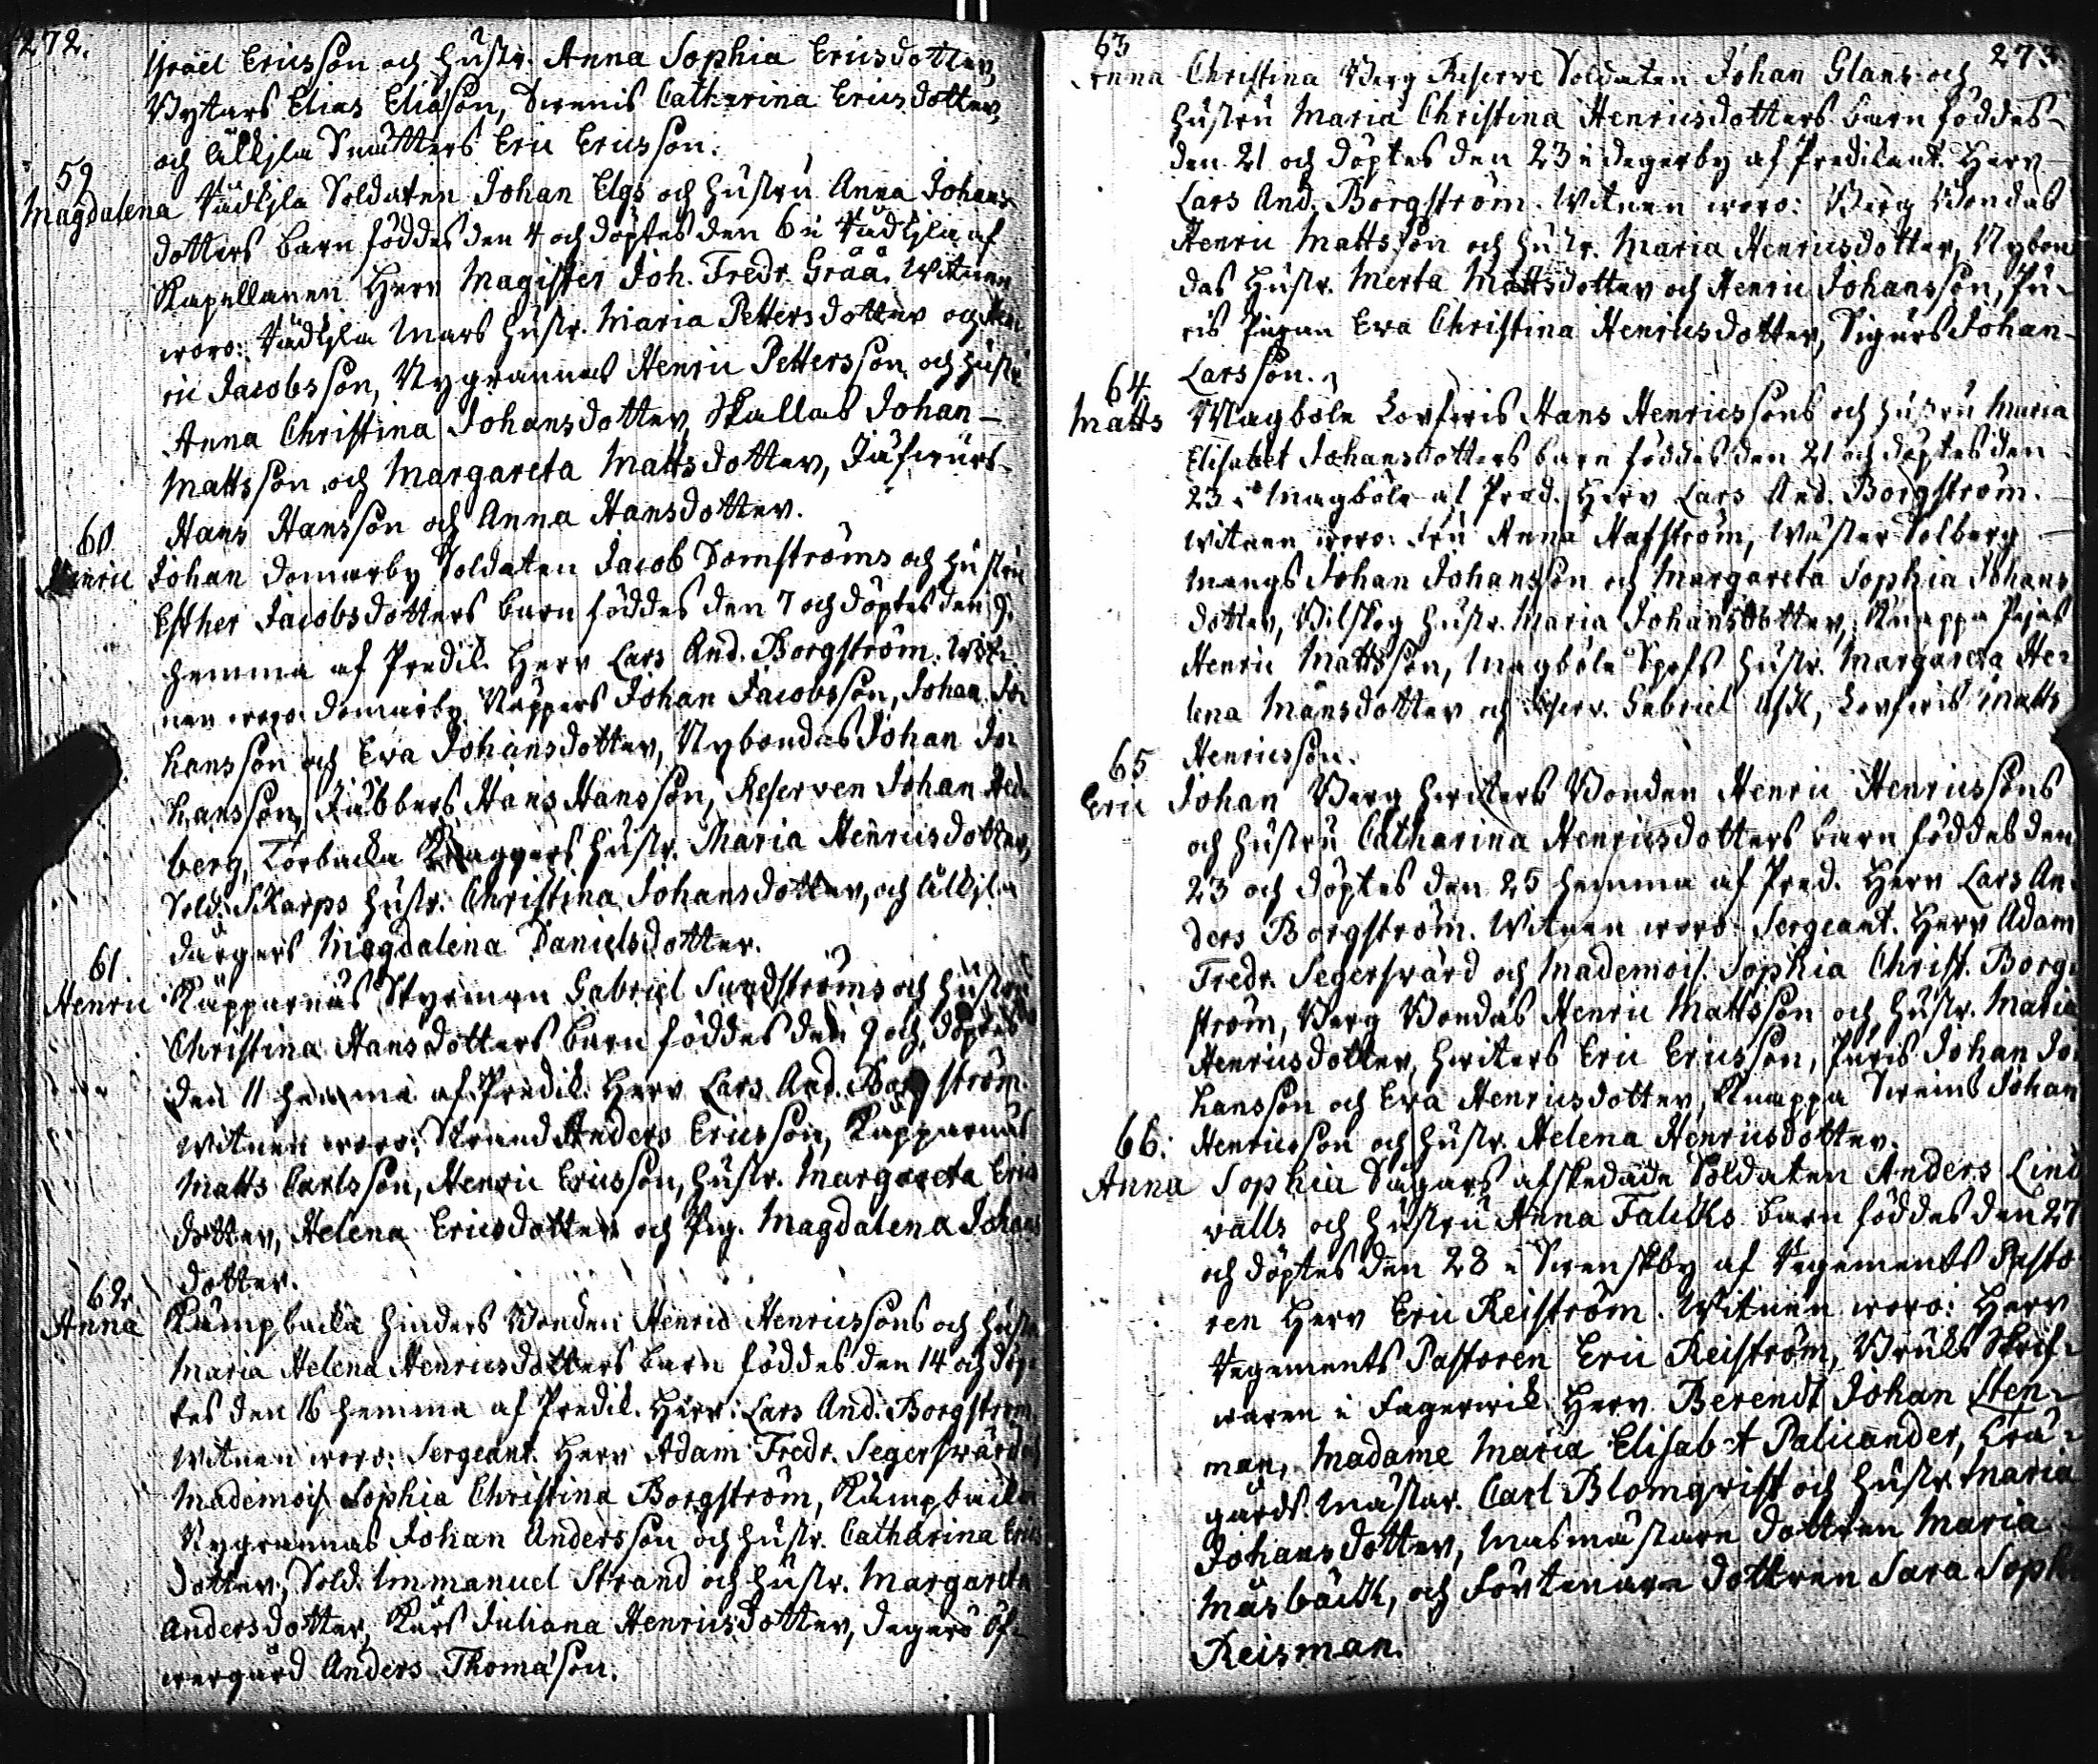 272.
Israel Ericsson och hustr. Anna Sophia Ericsdotter,
Rytars Elias Eliason, Svenis Catharina Ericsdotter,
och Älkjla Eric Ericsson.
59
Magdalena Räckjla Soldaten Johan Elgs och hustru Anna Johans
dotters barn föddes den 4 och döptes den 6 i Räckjla af
Kapellanen Herr Magister Joh. Fredr. Gråå. Witnen
woro: Räckjla Mars hustr. Maria Pettersdotter och Hen
ric Jacobsson, Nygrannas Henric Pettersson och hustr
Anna Christina Johansdotter, Skallas Johan
Mattsson och Margareta Mattsdotter,
Hans Hansson och Anna Hansdotter.
60
Henric Johan Domarby Soldaten Jacob Domströms och hustru
Esther Jacobsdotters barn föddes den 7 och döptes den 9.
hemma af Predik. Herr Lars And. Borgström. Wit
nen woro: Domarby Näppers Johan Jacobsson, Johan Jo
hansson och Eva Johansdotter, Nybondas Johan Jo
hansson, Jäbbers Hans Hansson, Reserven Johan Hed
berg, Torbacka Knaggars hustr. Maria Henricsdotter,
Sold. Skarps hustr. Christina Johansdotter, och Älkjla
Magdalena Danielsdotter.
61
Henric Käpparnäs Styrman Gabriel Sundströms och hustru
Christina Hansdotters barn föddes den 9 och döptes
den 11 hemma af Predik. Herr Lars And. Borgström.
Witnen woro: Strand Anders Ericsson, Käpparnäs
Matts Carlsson, Henric Ericsson, hustr. Margareta Erics
dotter, Helena Ericsdotter och Pig. Magdalena Johans
dotter.
62.
Anna Kämpbacka Hinders Bonden Henric Henricssons och hustr
Maria Helena Henricsdotters barn föddes den 14 och döp
tes den 16 hemma af Predik. Herr Lars And. Borgström.
Witnen woro: Sergeant. Herr Adam Fredr. Segersvärd
Mademois. Sophia Christina Borgström, Kämpbacka
Nygrannas Johan Andersson och hustr. Catharina Erics
dotter, Sold. Immanuel Strand och hustr. Margareta
Andersdotter, Kärs Juliana Henricsdotter, Degerö Öf-
wergård Anders Thomason.
273.
63
Anna Christina Berg Reserve Soldaten Johan Glans och
hustru Maria Christina Henricsdotters barn föddes
den 21 och döptes den 23 i Degerby af Predikant. Herr
Lars And. Borgström. Witnen woro: Berg Bondas
Henric Mattsson och hustr. Maria Henricsdotter, Nybon
das hustr. Merta Mattsdotter och Henric Johansson, Ju-
ris pigan Eva Christina Henricsdotter, Sigurs Johan
Larsson.
64
Matts Magböle Lovseris Hans Henricssons och hustru Maria
Elisabet Johansdotters barn föddes den 21 och döptes den
23 i Magböle af Pred. Herr Lars And. Borgström.
Witnen woro: Fru Anna Hafström, Wäster Solberg
Mangs Johan Johansson och Margareta Sophia Johans
dotter, Bilskog hustr. Maria Johansdotter, Knappa
Henric Mattsson, Magböle Spofs hustr. Margareta He-
lena Månsdotter och Reserv. Gabriel Ask, Lovseris Matts
Henricsson.
65
Eric Johan Berg Heriters Bonden Henric Henricssons
och hustru Catharina Henricsdotters barn föddes den
23 och döptes den 25 hemma af Pred. Herr Lars An
ders Borgström. Witnen woro: Sergeant. Herr Adam
Fredr. Segersvärd och Mademois. Sophia Christ. Borg
ström, Berg Bondas Henric Mattsson och hustr. Maria
Henricsdotter, Heriters Eric Ericsson, Juris Johan Jo
hansson och Eva Henricsdotter, Knappa Svenis Johan
Henricsson och hustr. Helena Henricsdotter.
66.
Anna Sophia Sågars afskedade Soldaten Anders Lind
valls och hustru Anna Falcks barn föddes den 27
och döptes den 28 i Svenskby af Regements Pasto
ren Herr Eric Reiström. Witnen woro: Herr
Regements Pastoren Eric Reiström, Bruks Skrif-
waren i Fagerwik Herr Berendt Johan Sten-
man, Madame Maria Elisabet Palicander, Trä-
gårds mästar. Carl Blomqvist och hustr. Maria
Johansdotter, Masmästare dottren Maria
Masbäck, och dottren Sara Soph
Reisman.